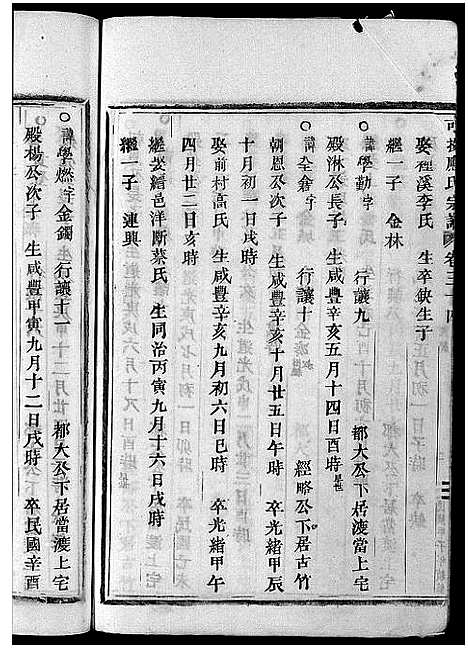 娶種溪李氏　生卒缺生子
繼一子　金林
○諱學勤字　行讓九　都大公下居當渡上宅
殿淋公長子　生咸豐辛亥五月十四日酉時
○諱全　字　行讓十　經略公下居古竹
朝恩公次子　生咸豐辛亥十月廿五日午時　卒光緒甲辰
十月初一日戌時
娶前村高氏　生咸豐辛亥九月初六日巳時　卒光緒甲午
四月廿二日亥時
繼娶縉邑洋斷蔡氏　生同治丙寅九月十六日戌時
繼一子　連興
○諱學燃字金鐲　行讓十一　都大公下居當渡上宅
殿楊公次子　生咸豐甲寅九月十二日戌時　卒民國辛酉